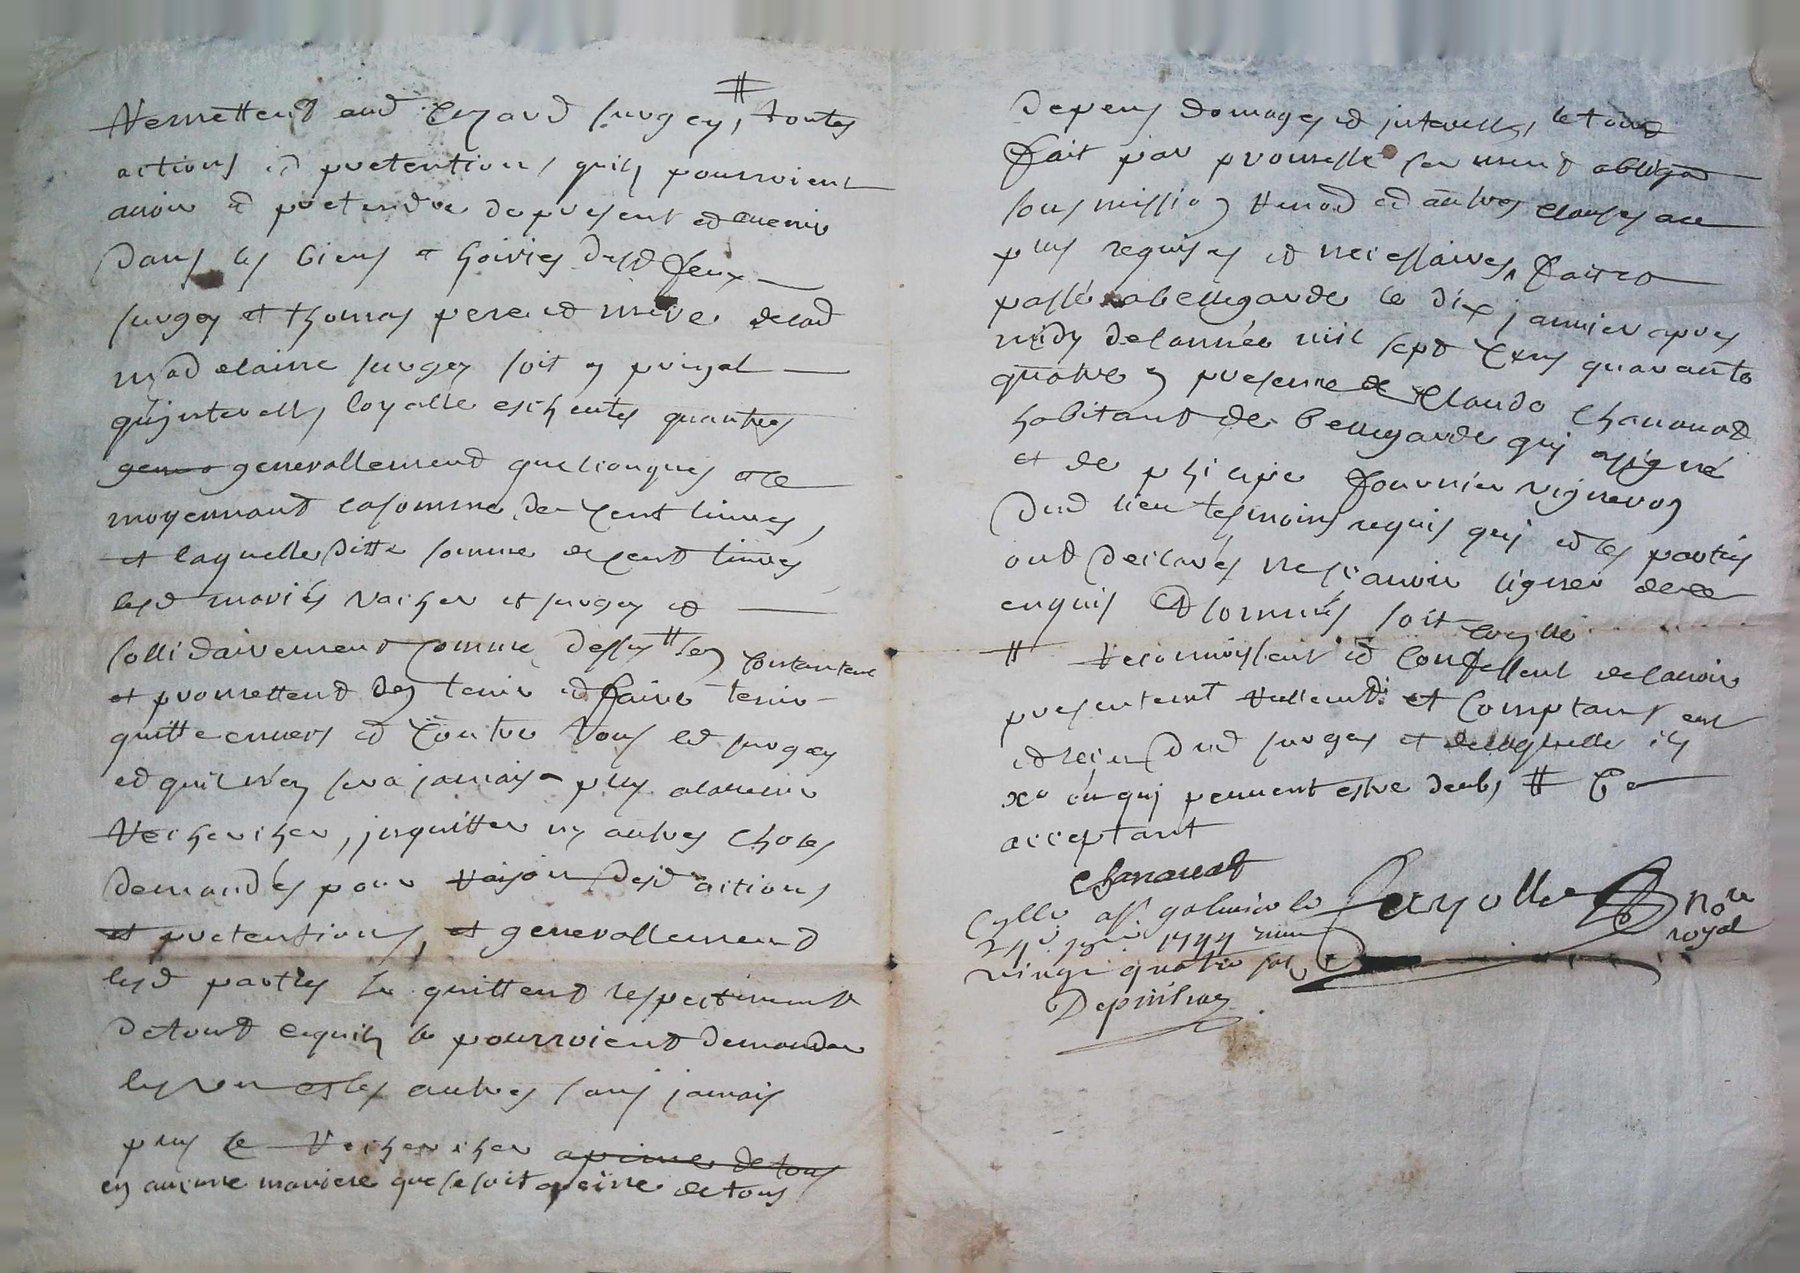 #
Remettent aud Surgey, toutes
actions et pretentions quils pourroient
avoir et pretendre de present et avenir
Dans les biens et hoiries desd feux
Surgey et thomas pere et mere delad
madelaine Surgey soit en prinpal
quinterests loyalle escheutes quantres
generallement quelconques et ce
moyennant la somme de Cent livres,
et laquelle ditte somme de cent livres
lesd mariés Vacher et Surgey et
sollidairement comme dessus # sen contantent
et promettent den tenir et faire tenir
quitte envers et Contre tous led Surgey
et quil nen sera jamais plus alavenir
Rechercher, inquitter ny autres choses
demandés pour raison desd actions
et pretentions, et generallement
lesd parties se quittent respectivement
detout cequils se pourroient demander
les uns et les autres sans jamais
plus se Rechercher apeine de tous
en aucune maniere que se soit apeine de tous
Depens domages et interests, le tout
fait par promesse serment obligaon
sousmission Renond et autres clauses au
plus requises et necessaires, fait et
passé abellegarde le dix janvier apres
midy delannée mil sept Cens quarante
quatre en presence de Claude Chanavat
habitant de bellegarde qui asigné
et de phi Fournier vigneron
dud lieu tesmoins requis qui et les parties
ont declarés nescavoir signer dece
enquis et sommés soit
# Reconnoissent et Confessent delavoir
presentent Rellemt et Comptant eu
et reçu dud Surgey et delaquelle ils
qui peuvent estre deubs #
acceptant
Chanavat
Fayolle nore
royal
a St galmier le
24e janv 1744
vingt quatre sols